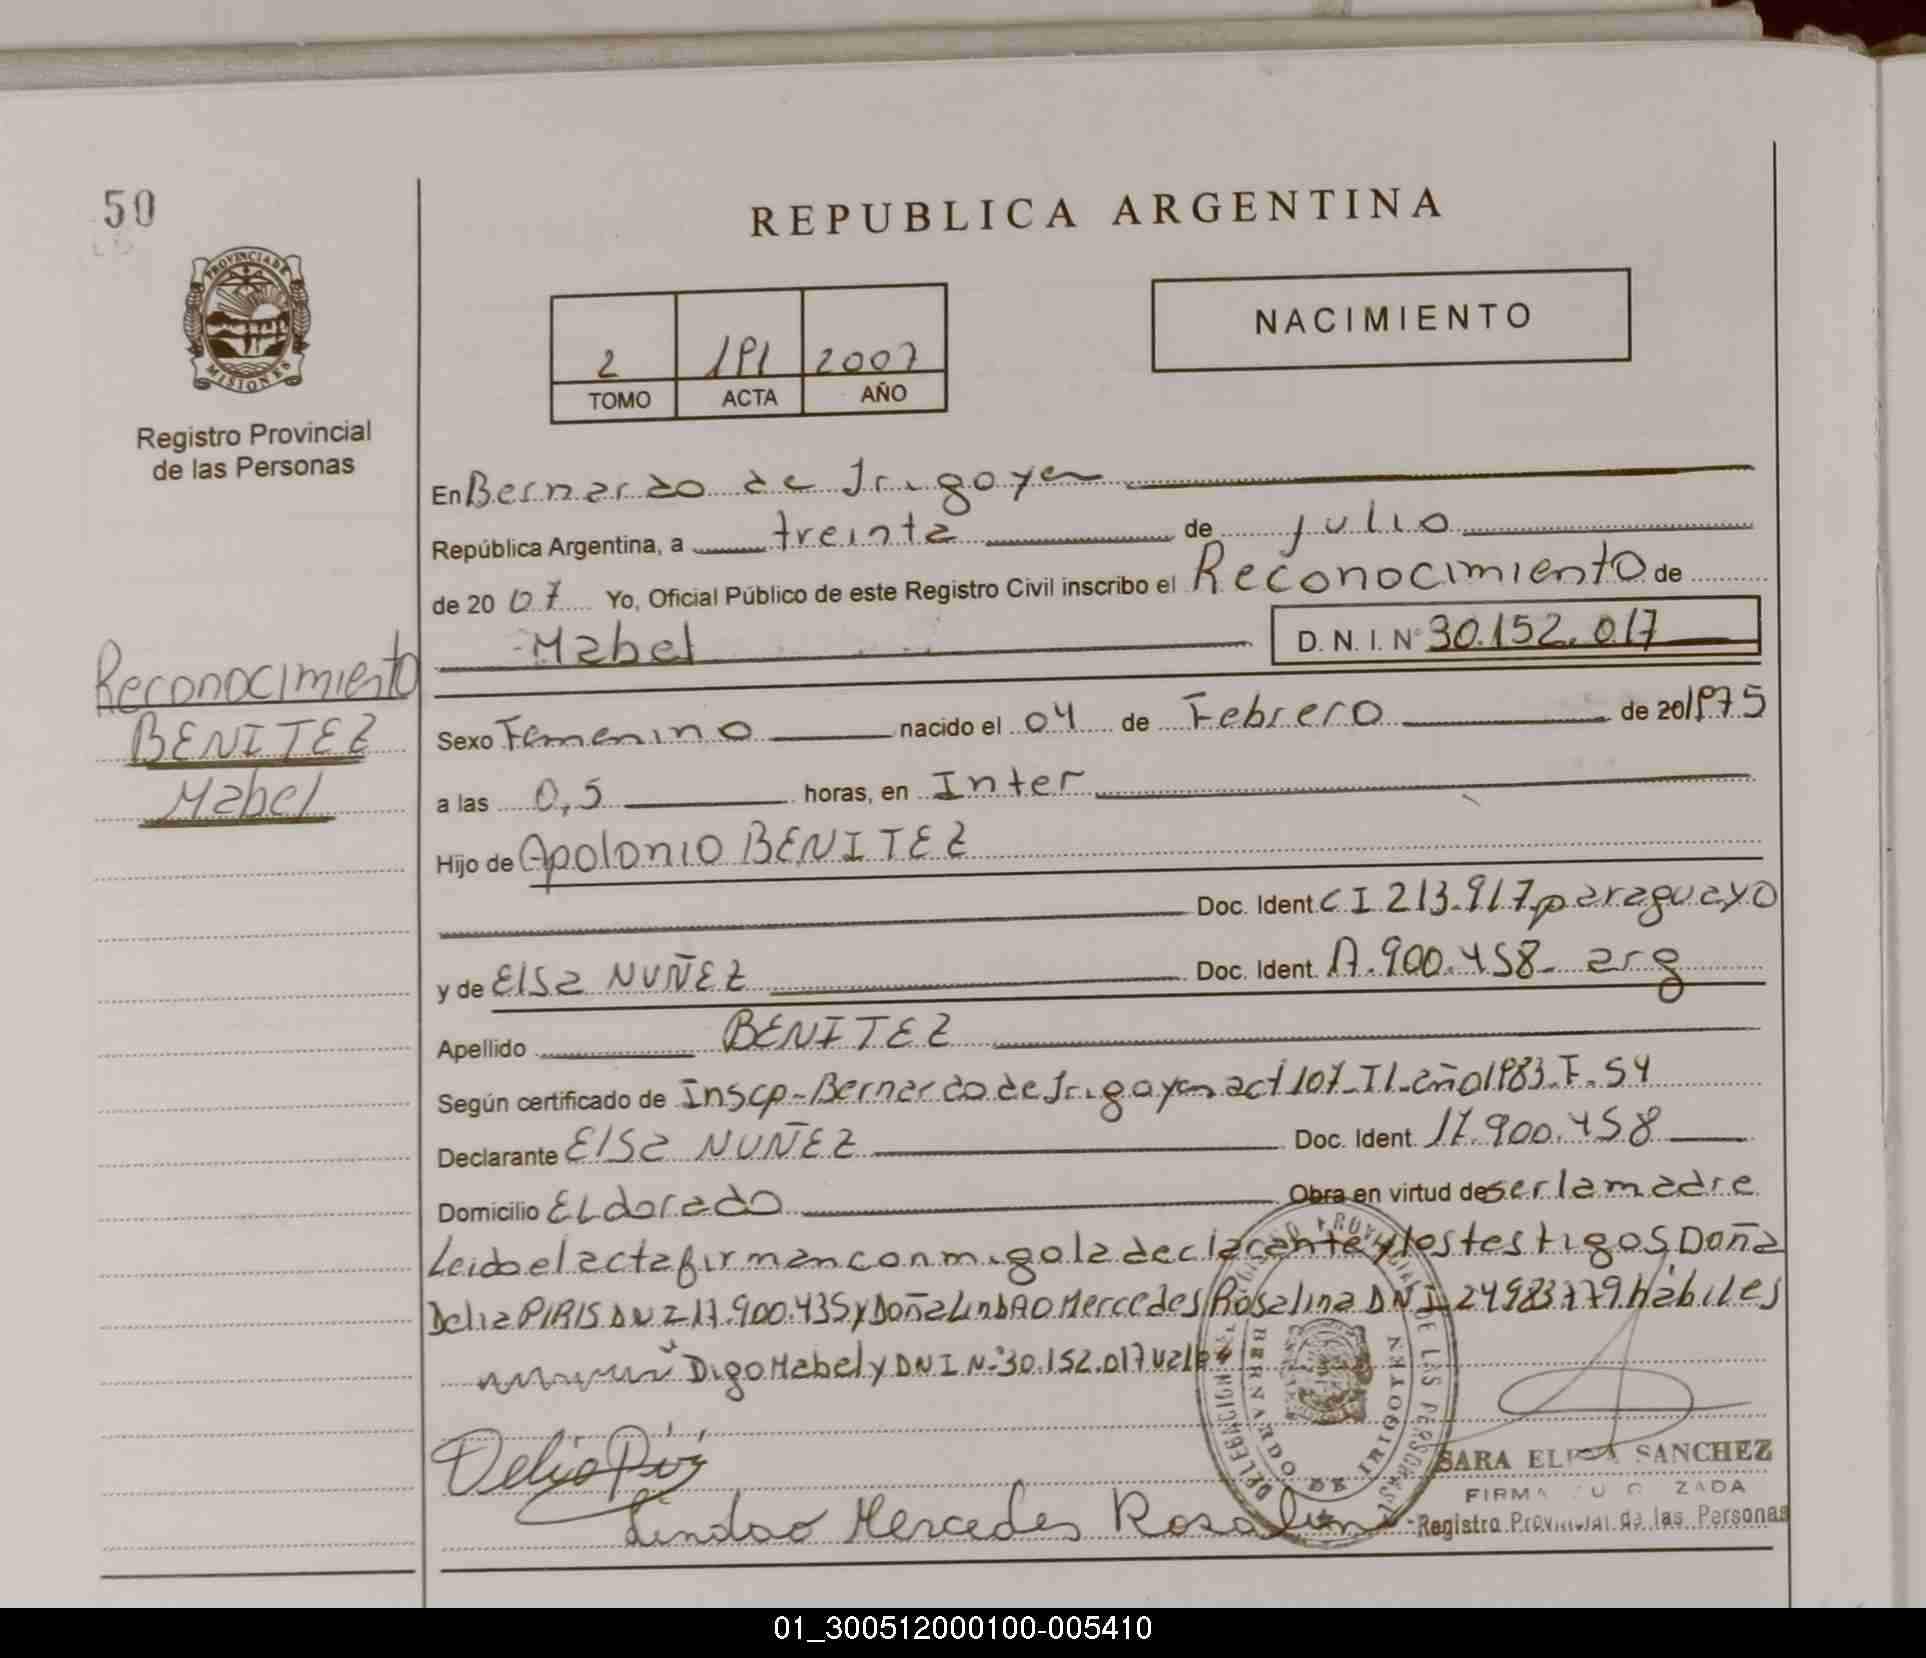 50
REPUBLICA ARGENTINA
PROVINCIA DE
MISIONES
Registro Provincial
de las Personas
2 191 2007
TOMO ACTA AÑO
NACIMIENTO
En Bernardo de Irigoyen
República Argentina, a treinta de julio
de 20 07 Yo, Oficial Público de este Registro Civil inscribo el Reconocimiento de
Mabel D. N. I. Nº 30.152.017
Reconocimiento
BENITEZ
Mabel
Sexo Femenino nacido el 04 de Febrero de 20 1975
a las 0,5 horas, en Inter
Hijo de Apolonio BENITEZ
Doc. Ident. C I 213.917 paraguayo
y de Elsa NUÑEZ Doc. Ident. 17.900.458- arg
Apellido BENITEZ
Según certificado de Inscp-Bernardo de Irigoyen act 107-T1-año1983.F.54
Declarante Elsa NUÑEZ Doc. Ident. 17.900.458
Domicilio ELdorado Obra en virtud de ser la madre
Leido el acta firman conmigo la declarante y los testigos Doña
Delia PIRIS DNI 17.900.435 y Doña LindAO Mercedes Rosalina DNI 24983779 Hábiles
Digo Mabel y DNI N-30.152.017 vale
Delia Piris
Lindao Mercedes Rosalina
DELEGACION
REGISTRO PROVINCIAL DE LAS PERSONAS
BERNARDO DE IRIGOYEN
SARA SANCHEZ
FIRMA
Registro Provincial de las Personas
01_300512000100-005410